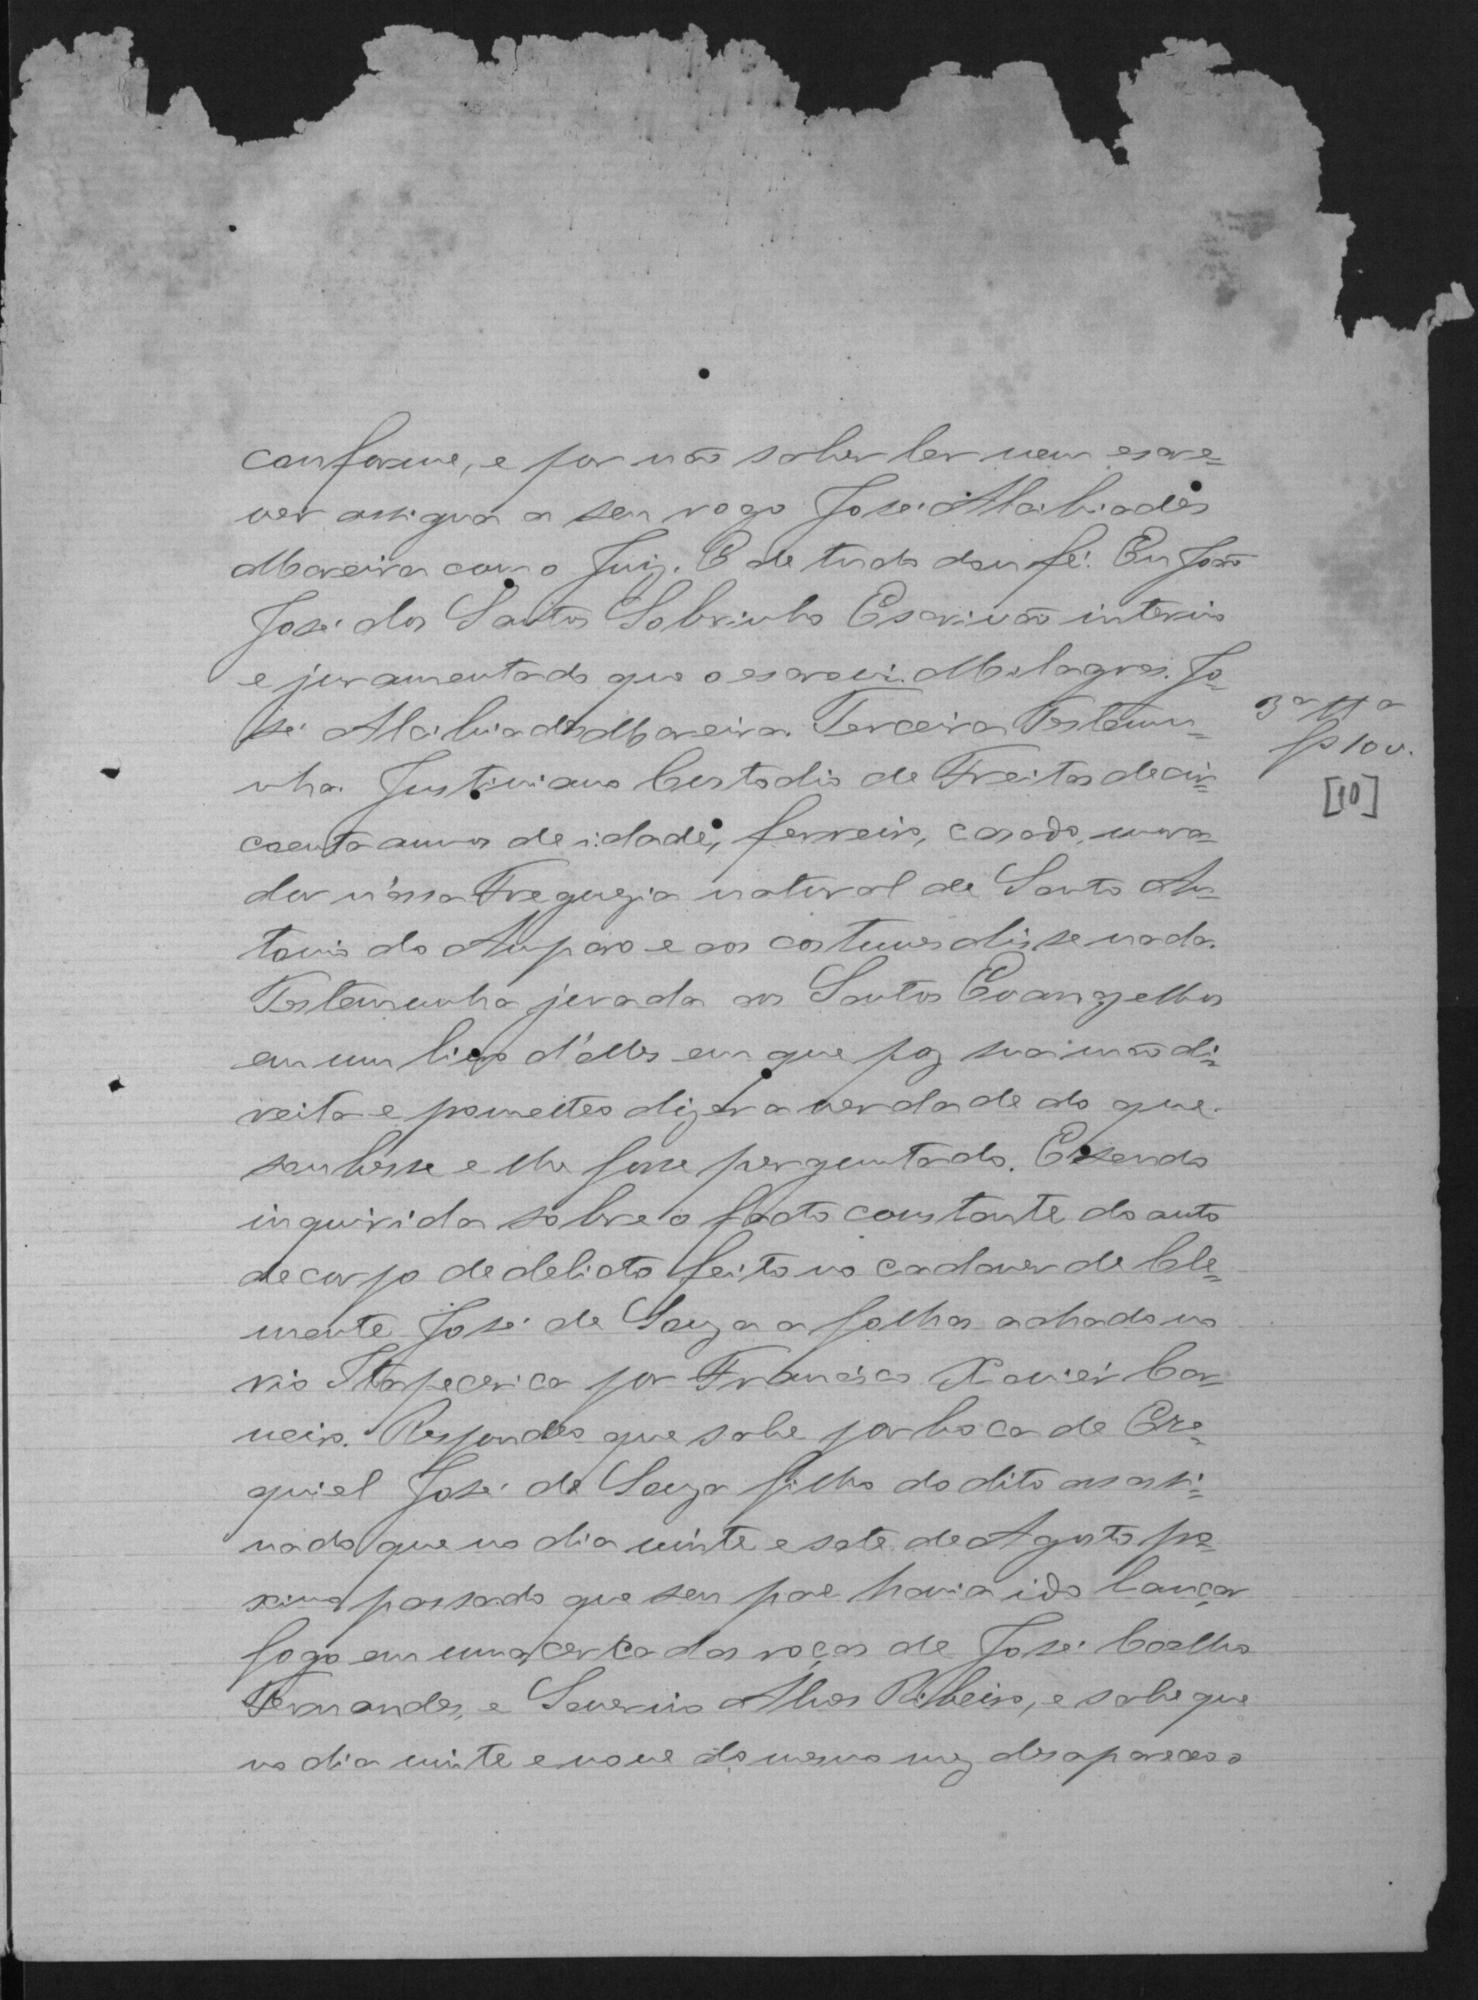 conforme, e por não saber ler nem escre=
ver assigna a seu rogo José Alcibiades
Moreira com o Juiz. E de tudo dou fé. Eu João
José dos Santos Sobrinho Escrivão interino
e juramentado que o escrevi. Milagres. Jo=
sé Alcibiades Moreira. Terceira Testemu=
nha. Justiniano Custodio de Freitas de cin=
coenta annos de idade, ferreiro, casado, mora=
dor n'essa Freguezia natural de Santo An=
tonio do Amparo e aos costumes disse nada.
Testemunha jurada aos Santos Evangelhos
em um livro d'elles em que poz sua mão di=
reita e prometteo dizer a verdade do que
soubesse e lhe fosse perguntado. E sendo
inquirida sobre o facto constante do auto
de corpo de delicto feito no cadaver de Cle=
mente José de Souza a folhas achado no
rio Itapecerica por Francisco Xavier Car=
neiro. Respondeo que sabe por boca de Eze=
quiel José de Souza filho do dito assassi=
nado que no dia vinte e sete de Agosto pro=
ximo passado que seu pae havia ido lançar
fogo em uma cerca das roças de José Coelho
Fernandes, e Severino Alves Ribeiro, e sabe que
no dia vinte e nove do mesmo mez desapareceo o
3ª ttª
fs 10 v.
[10]